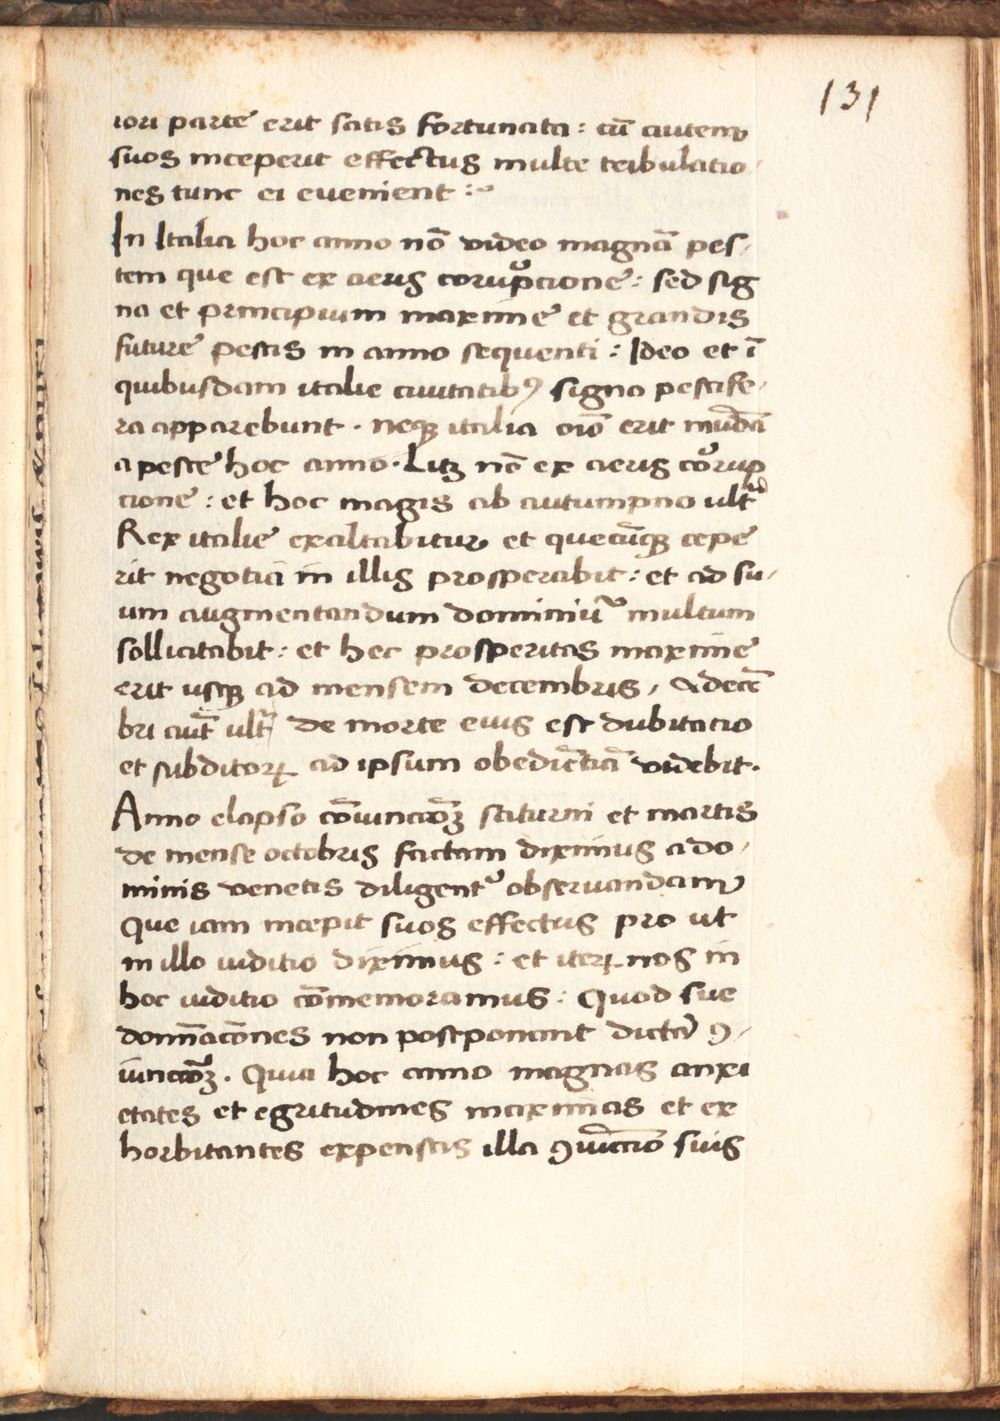 131
iori parte erit satis fortunata : cũ autem
suos inceperit effectus multe tribulatio
nes tunc ei evenient :~
In Italia hoc anno nõ video magnã pes-
tem que est ex aeris corrupcione : sed sig
na et principium maxime et grandis
future pestis in anno sequenti : Ideo et ĩ
quibusdam italie civitatibꝰ signa pestife-
ra apparebunt . neqꝫ italia oĩo erit mũdã
a peste hoc anno . Litꝫ nõ ex aeris corrup
cione : et hoc magis ab autumpno ult̃
Rex italie exaltabitur et quecũqꝫ cepe
rit negotia in illis prosperabit : et ad su-
um augmentandum dominiũ multum
sollicitabit : et hec prosperitas maxime
erit usqꝫ ad mensem decembris , & decẽ
bri aut̃ ult̃ de morte eius est dubitatio
et subditoꝝ ad ipsum obediẽtiã videbit .
Anno elapso cõiunctõꝫ saturni et martis
de mense octobris factam diximus a do-
minis venetis diligent observandam
Que iam incepit suos effectus pro ut
in illo iuditio diximus : et iteꝝ nos in
hoc iuditio cõmemoramus : Quod sue
domĩacões non postponant dictã ꝯ-
iunctõꝫ . Quia hoc anno magnas anxi
etates et egritudines maximas et ex
horbitantes expensas illa ꝯiũctio suis